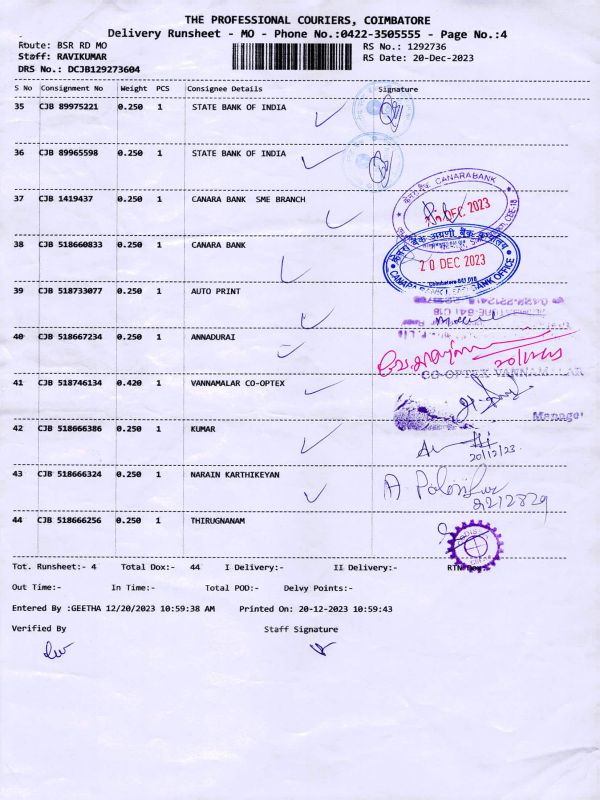 THE PROFESSIONAL COURIERS, COIMBATORE
Delivery Runsheet - MO - Phone No.:0422-3505555 - Page No.:4
Route: BSR RD MO RS No.: 1292736
Staff: RAVIKUMAR RS Date: 20-Dec-2023
DRS No.: DCJB129273604
S No Consignment No Weight PCS Consignee Details Signature
35 CJB 89975221 0.250 1 STATE BANK OF INDIA
36 CJB 89965598 0.250 1 STATE BANK OF INDIA
CANARA BANK
37 CJB 1419437 0.250 1 CANARA BANK SME BRANCH
DEC 2023
38 CJB 518660833 0.250 1 CANARA BANK
20 DEC 2023
Coimbatore-641 018
39 CJB 518733077 0.250 1 AUTO PRINT
40 CJB 518667234 0.250 1 ANNADURAI
CO-OPTEX VANNAM
41 CJB 518746134 0.420 1 VANNAMALAR CO-OPTEX
Manager
42 CJB 518666386 0.250 1 KUMAR
20/12/23
43 CJB 518666324 0.250 1 NARAIN KARTHIKEYAN
44 CJB 518666256 0.250 1 THIRUGNANAM
Tot. Runsheet:- 4 Total Dox:- 44 I Delivery:- II Delivery:- RTN
Out Time:- In Time:- Total POD:- Delvy Points:-
Entered By :GEETHA 12/20/2023 10:59:38 AM Printed On: 20-12-2023 10:59:43
Verified By Staff Signature